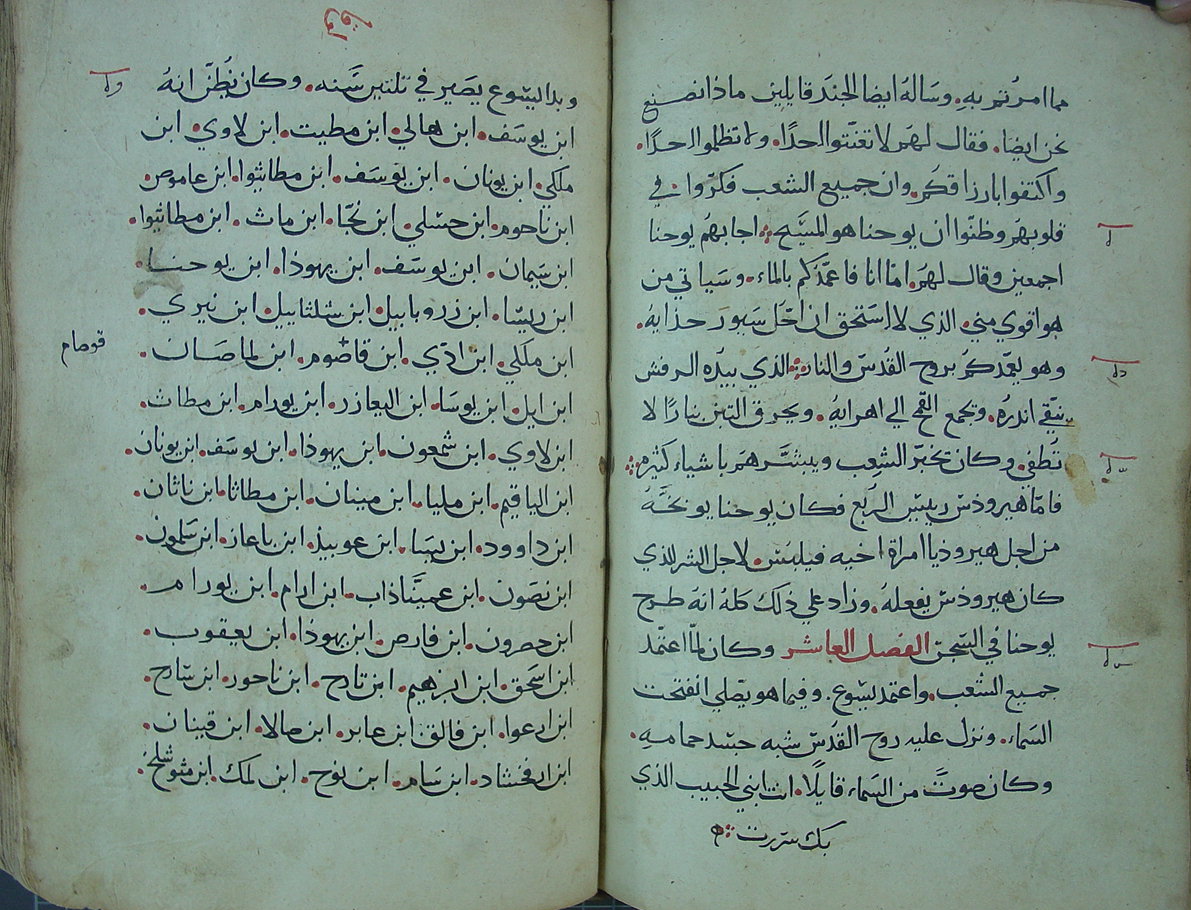 مما امرتم به. وساله ايضا الجند قايلين ماذا نصنع
نحن ايضا. فقال لهم لا تعنتوا احدًا. ولا تظلموا احدًا.
واكتفوا بارزاقكم. وان جميع الشعب فكروا في
قلوبهم وظنوا ان يوحنا هو المسيح. اجابهم يوحنا
اجمعين وقال لهم. اما انا فاعمدكم بالماء. وسياتي من
هو اقوي مني. الذي لا استحق ان احل سيور حذايه.
وهو يعمدكم بروح القدس والنار. الذي بيده الرفش
ينقي اندره. ويجمع القمح الي اهرايه. ويحرق التبن بنارًا لا
تُطفي. وكان يخبر الشعب ويبشرهم باشياء كثيره
فاما هيرودس رييس الربع فكان يوحنا يوبخه
من اجل هيروديا امراة اخيه فيلبس. لاجل الشر الذي
كان هيرودس يفعله. وزاد علي ذلك كله انه طرح
يوحنا في السجن الفصل العاشر وكان لما اعتمد
جميع الشعب. واعتمد يسوع. وفيما هو يصلي انفتحت
السماء. ونزل عليه روح القدس شبه جسد حمامه.
وكان صوتً من السماء قايلًا. انت ابني الحبيب الذي
بك سررت
لوقا
وبدا يسوع يصير في تلتين سنه. وكان يُظن انهُ
ابن يوسف. ابن هالي. ابن مطيت. ابن لاوي. ابن
ملكي. ابن يونان. ابن يوسف. ابن مطاثيوا. ابن عاموص.
ابن ناحوم. ابن حسلي. ابن نجا. ابن ماث. ابن مطاثيوا.
ابن سمان. ابن يوسف. ابن يهوذا. ابن يوحنا.
ابن ريسا. ابن زروبابيل. ابن شلثاييل. ابن نيري.
ابن ملكي. ابن ادي. ابن قاصوم. ابن لماصان.
قوصام
ابن ايل. ابن يوسا. ابن اليعازر. ابن يورام. ابن مطاث.
ابن لاوي. ابن شمعون. ابن يهوذا. ابن يوسف. ابن يونان.
ابن الياقيم. ابن مليا. ابن مينان. ابن مطاثا. ابن ناثان.
ابن داوود. ابن يسا. ابن عوبيذ. ابن باعاز. ابن سلمون.
ابن نصون. ابن عميناذاب. ابن ارام. ابن يورام.
ابن حصرون. ابن فارص. ابن يهوذا. ابن يعقوب.
ابن اسحق. ابن ابرهيم. ابن تارح. ابن ناحور. ابن ساروح.
ابن ارعوا. ابن فالق. ابن عابر. ابن صالا. ابن قينان.
ابن ارفخشاد. ابن سام. ابن نوح. ابن لمك. ابن متوشلح.